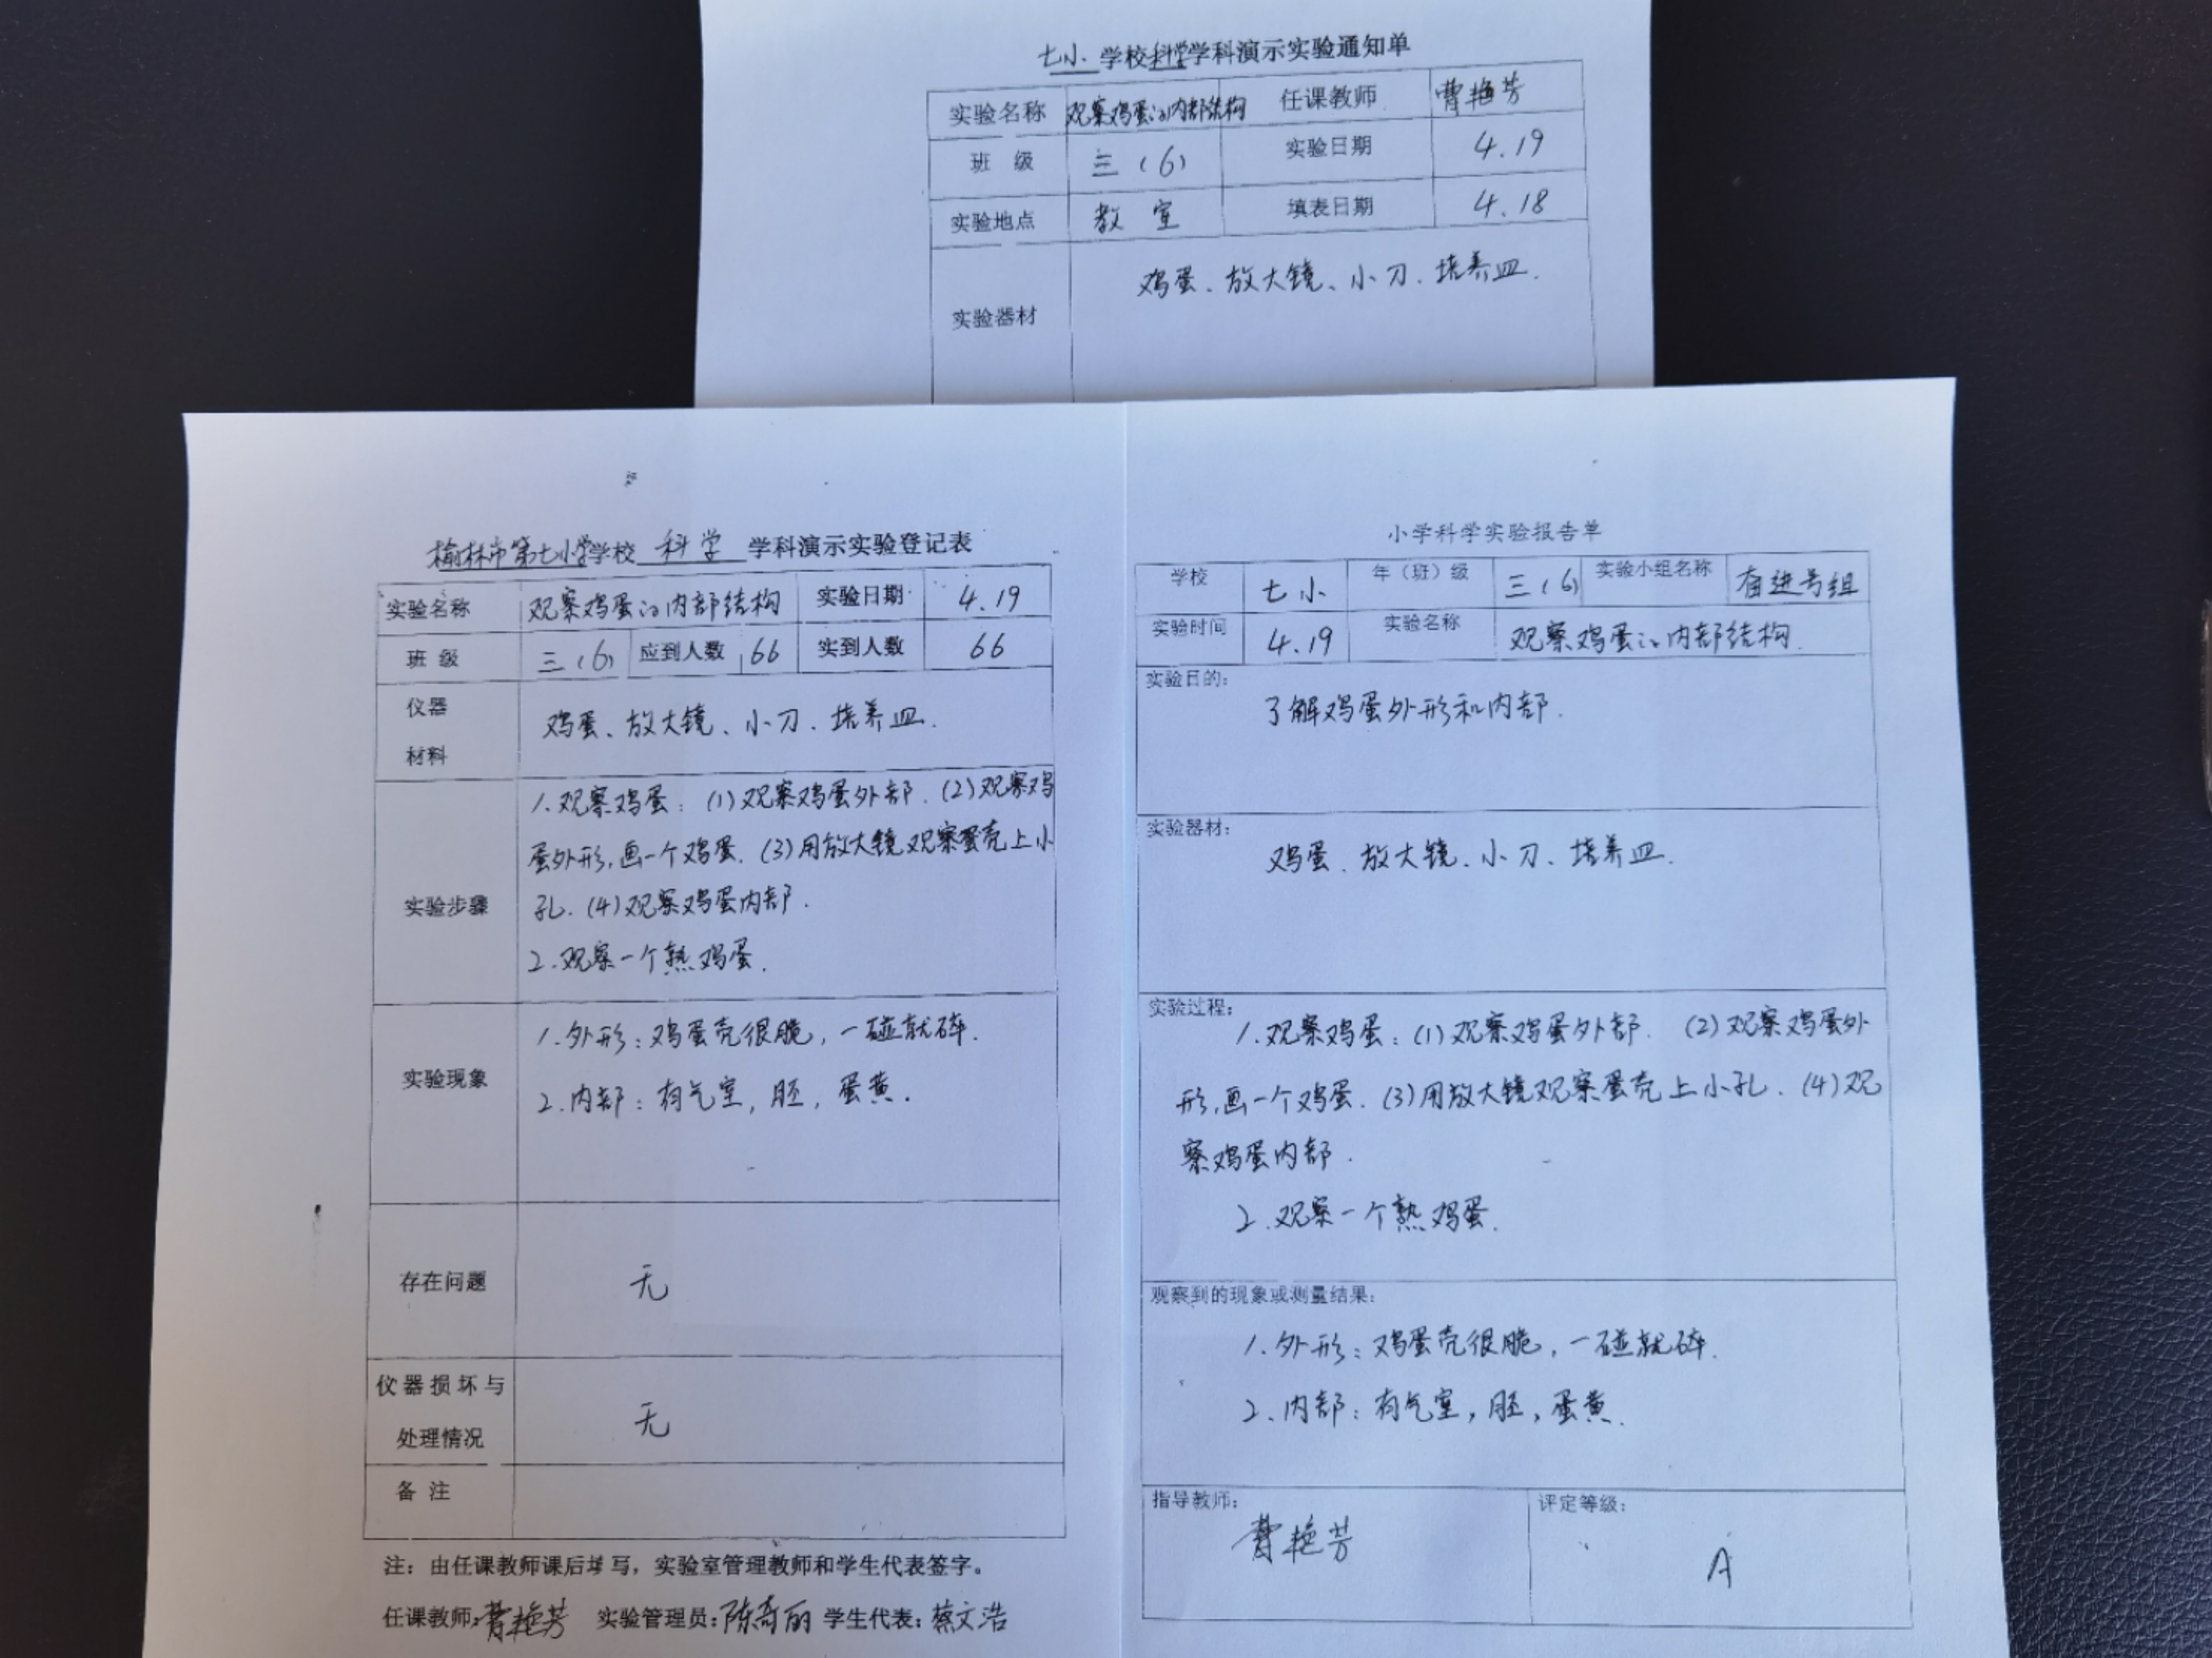 七小 学校科学学科演示实验通知单
实验名称 观察鸡蛋的内部结构 任课教师 曹艳芳
班 级 三（6） 实验日期 4.19
实验地点 教 室 填表日期 4.18
实验器材 鸡蛋、放大镜、小刀、培养皿.
榆林市第七小学学校 科学 学科演示实验登记表
实验名称 观察鸡蛋的内部结构 实验日期 4.19
班 级 三（6） 应到人数 66 实到人数 66
仪器
材料
鸡蛋、放大镜、小刀、培养皿.
实验步骤
1.观察鸡蛋：(1)观察鸡蛋外部.(2)观察鸡
蛋外形,画一个鸡蛋.(3)用放大镜观察蛋壳上小
孔.(4)观察鸡蛋内部.
2.观察一个熟鸡蛋.
实验现象
1.外形：鸡蛋壳很脆，一碰就碎.
2.内部：有气室，胚，蛋黄.
存在问题 无
仪器损坏与
处理情况
无
备 注
注：由任课教师课后填写，实验室管理教师和学生代表签字。
任课教师:曹艳芳 实验管理员:陈奇丽 学生代表:蔡文浩
小学科学实验报告单
学校 七小 年（班）级 三（6） 实验小组名称 奋进号组
实验时间 4.19 实验名称 观察鸡蛋的内部结构.
实验目的:
了解鸡蛋外形和内部.
实验器材:
鸡蛋、放大镜、小刀、培养皿.
实验过程:
1.观察鸡蛋：(1)观察鸡蛋外部. (2)观察鸡蛋外
形,画一个鸡蛋.(3)用放大镜观察蛋壳上小孔.(4)观
察鸡蛋内部.
2.观察一个熟鸡蛋.
观察到的现象或测量结果:
1.外形：鸡蛋壳很脆，一碰就碎.
2.内部：有气室，胚，蛋黄.
指导教师: 评定等级:
曹艳芳 A